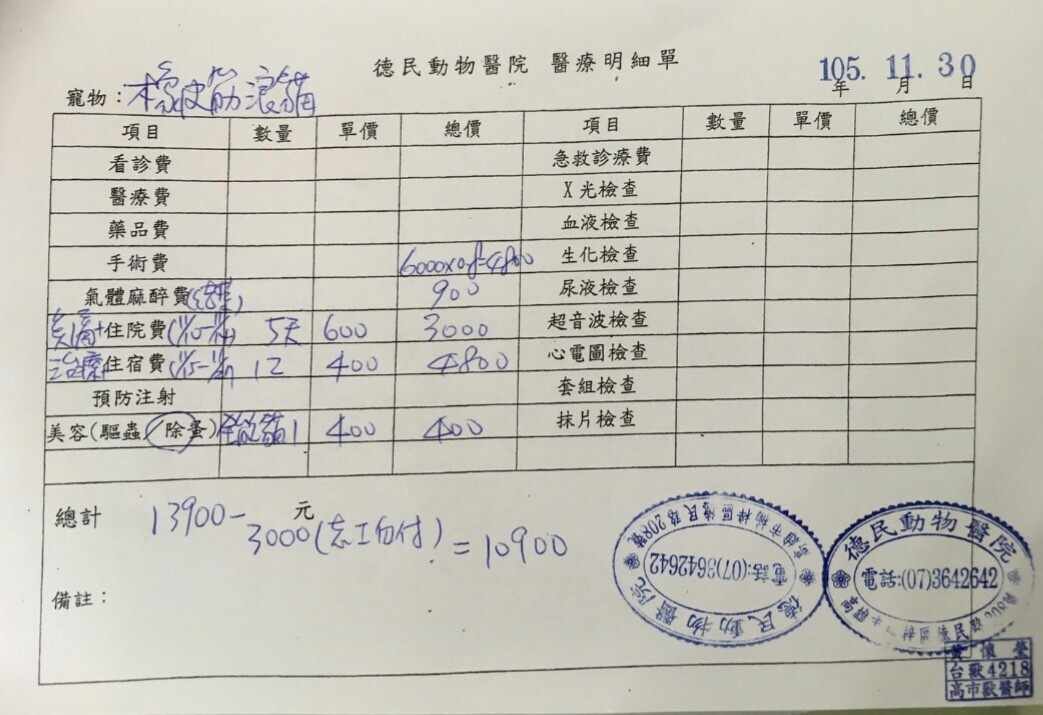 德民動物醫院 醫療明細單
105. 11. 30
年 月 日
寵物：橡皮筋浪貓
項目 數量 單價 總價 項目 數量 單價 總價
看診費 急救診療費
醫療費 X光檢查
藥品費 血液檢查
手術費 6000x0.8=4800 生化檢查
氣體麻醉費 900 尿液檢查
住院費 5天 600 3000 超音波檢查
治療+住宿費 12 400 4800 心電圖檢查
預防注射 套組檢查
美容(驅蟲/除蚤) 1 400 400 抹片檢查
總計 13900- 元
3000(志工自付) = 10900
備註：
德民動物醫院
電話:(07)3642642
高雄市楠梓區德民路208號
德民動物醫院
電話:(07)3642642
台獸4218
高市獸醫師